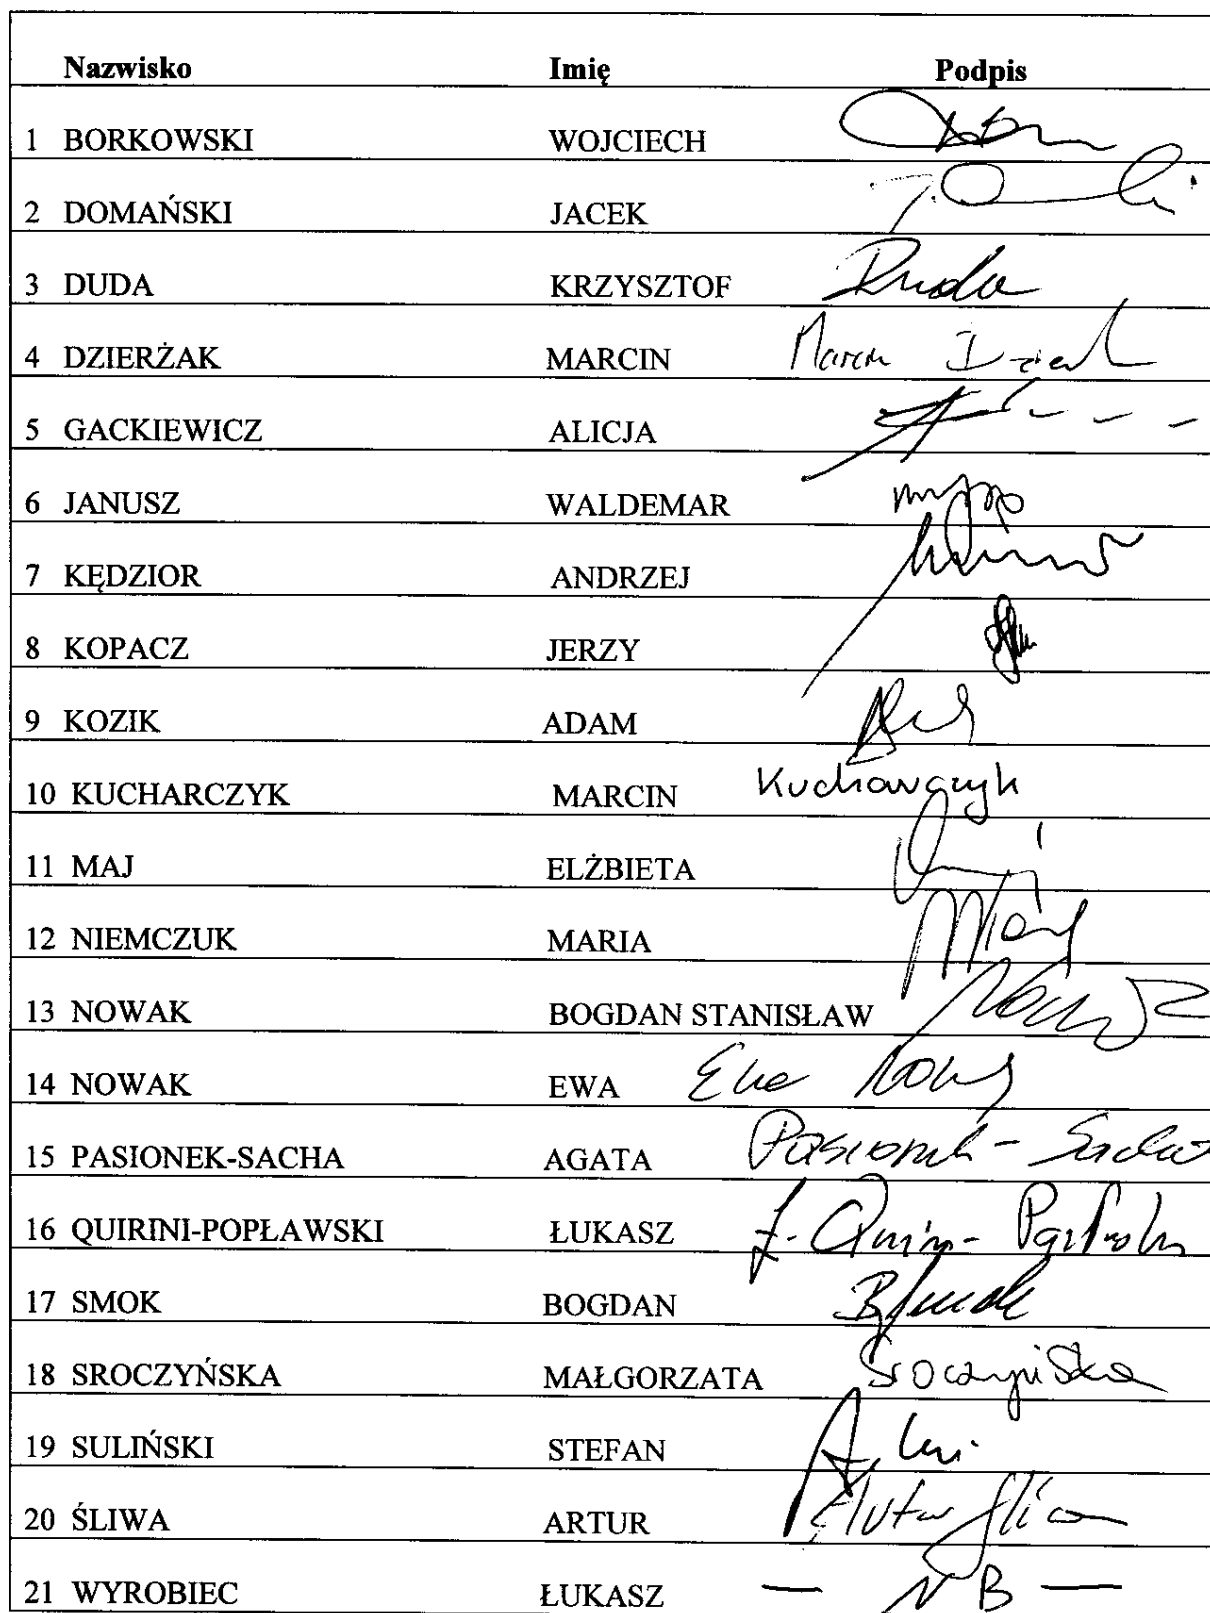 Nazwisko Imię Podpis
1 BORKOWSKI WOJCIECH
2 DOMAŃSKI JACEK
3 DUDA KRZYSZTOF Duda
4 DZIERŻAK MARCIN Marcin
5 GACKIEWICZ ALICJA
6 JANUSZ WALDEMAR
7 KĘDZIOR ANDRZEJ
8 KOPACZ JERZY
9 KOZIK ADAM
10 KUCHARCZYK MARCIN Kucharczyk
11 MAJ ELŻBIETA
12 NIEMCZUK MARIA
13 NOWAK BOGDAN STANISŁAW
14 NOWAK EWA Ewa Nowak
15 PASIONEK-SACHA AGATA Pasionek-Sacha
16 QUIRINI-POPŁAWSKI ŁUKASZ Ł. Quirini-Popławski
17 SMOK BOGDAN B Smok
18 SROCZYŃSKA MAŁGORZATA Sroczyńska
19 SULIŃSKI STEFAN
20 ŚLIWA ARTUR Artur Śliwa
21 WYROBIEC ŁUKASZ — NB —